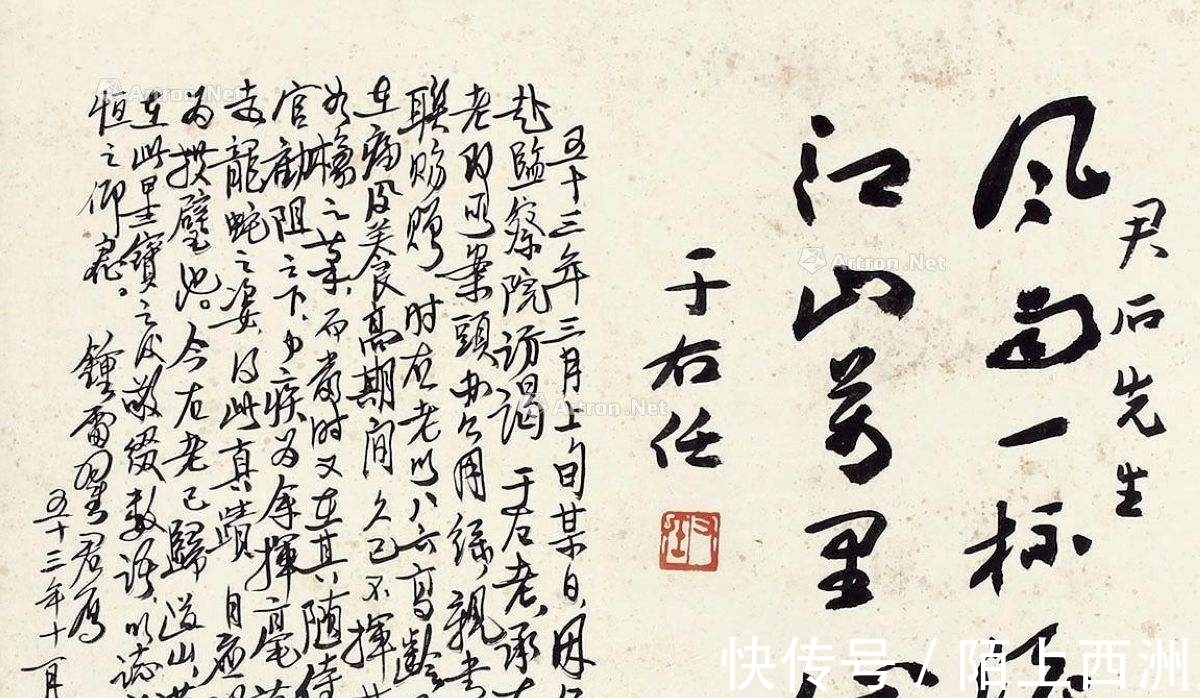 君石先生
风雨一杯
江山萬里
于右任
右任
五十三年三月上旬某日，因
赴監察院訪謁 于右老，承右
老即取案頭公用紙，親書
聯賜贈 時右老以八六高齡
在期間 久已不揮
如椽之筆，而當時又在其隨侍
官勸阻之下，力疾為余揮毫
走龍蛇之姿 得此真蹟 自
為拱璧也。今右老已歸道山，
在此墨寶之後敬綴數語，以誌
恒之仰慕。
鍾雷
五十三年十一月
Artron.Net
Artron.Net
Artron.Net
快传号 / 陌上西洲